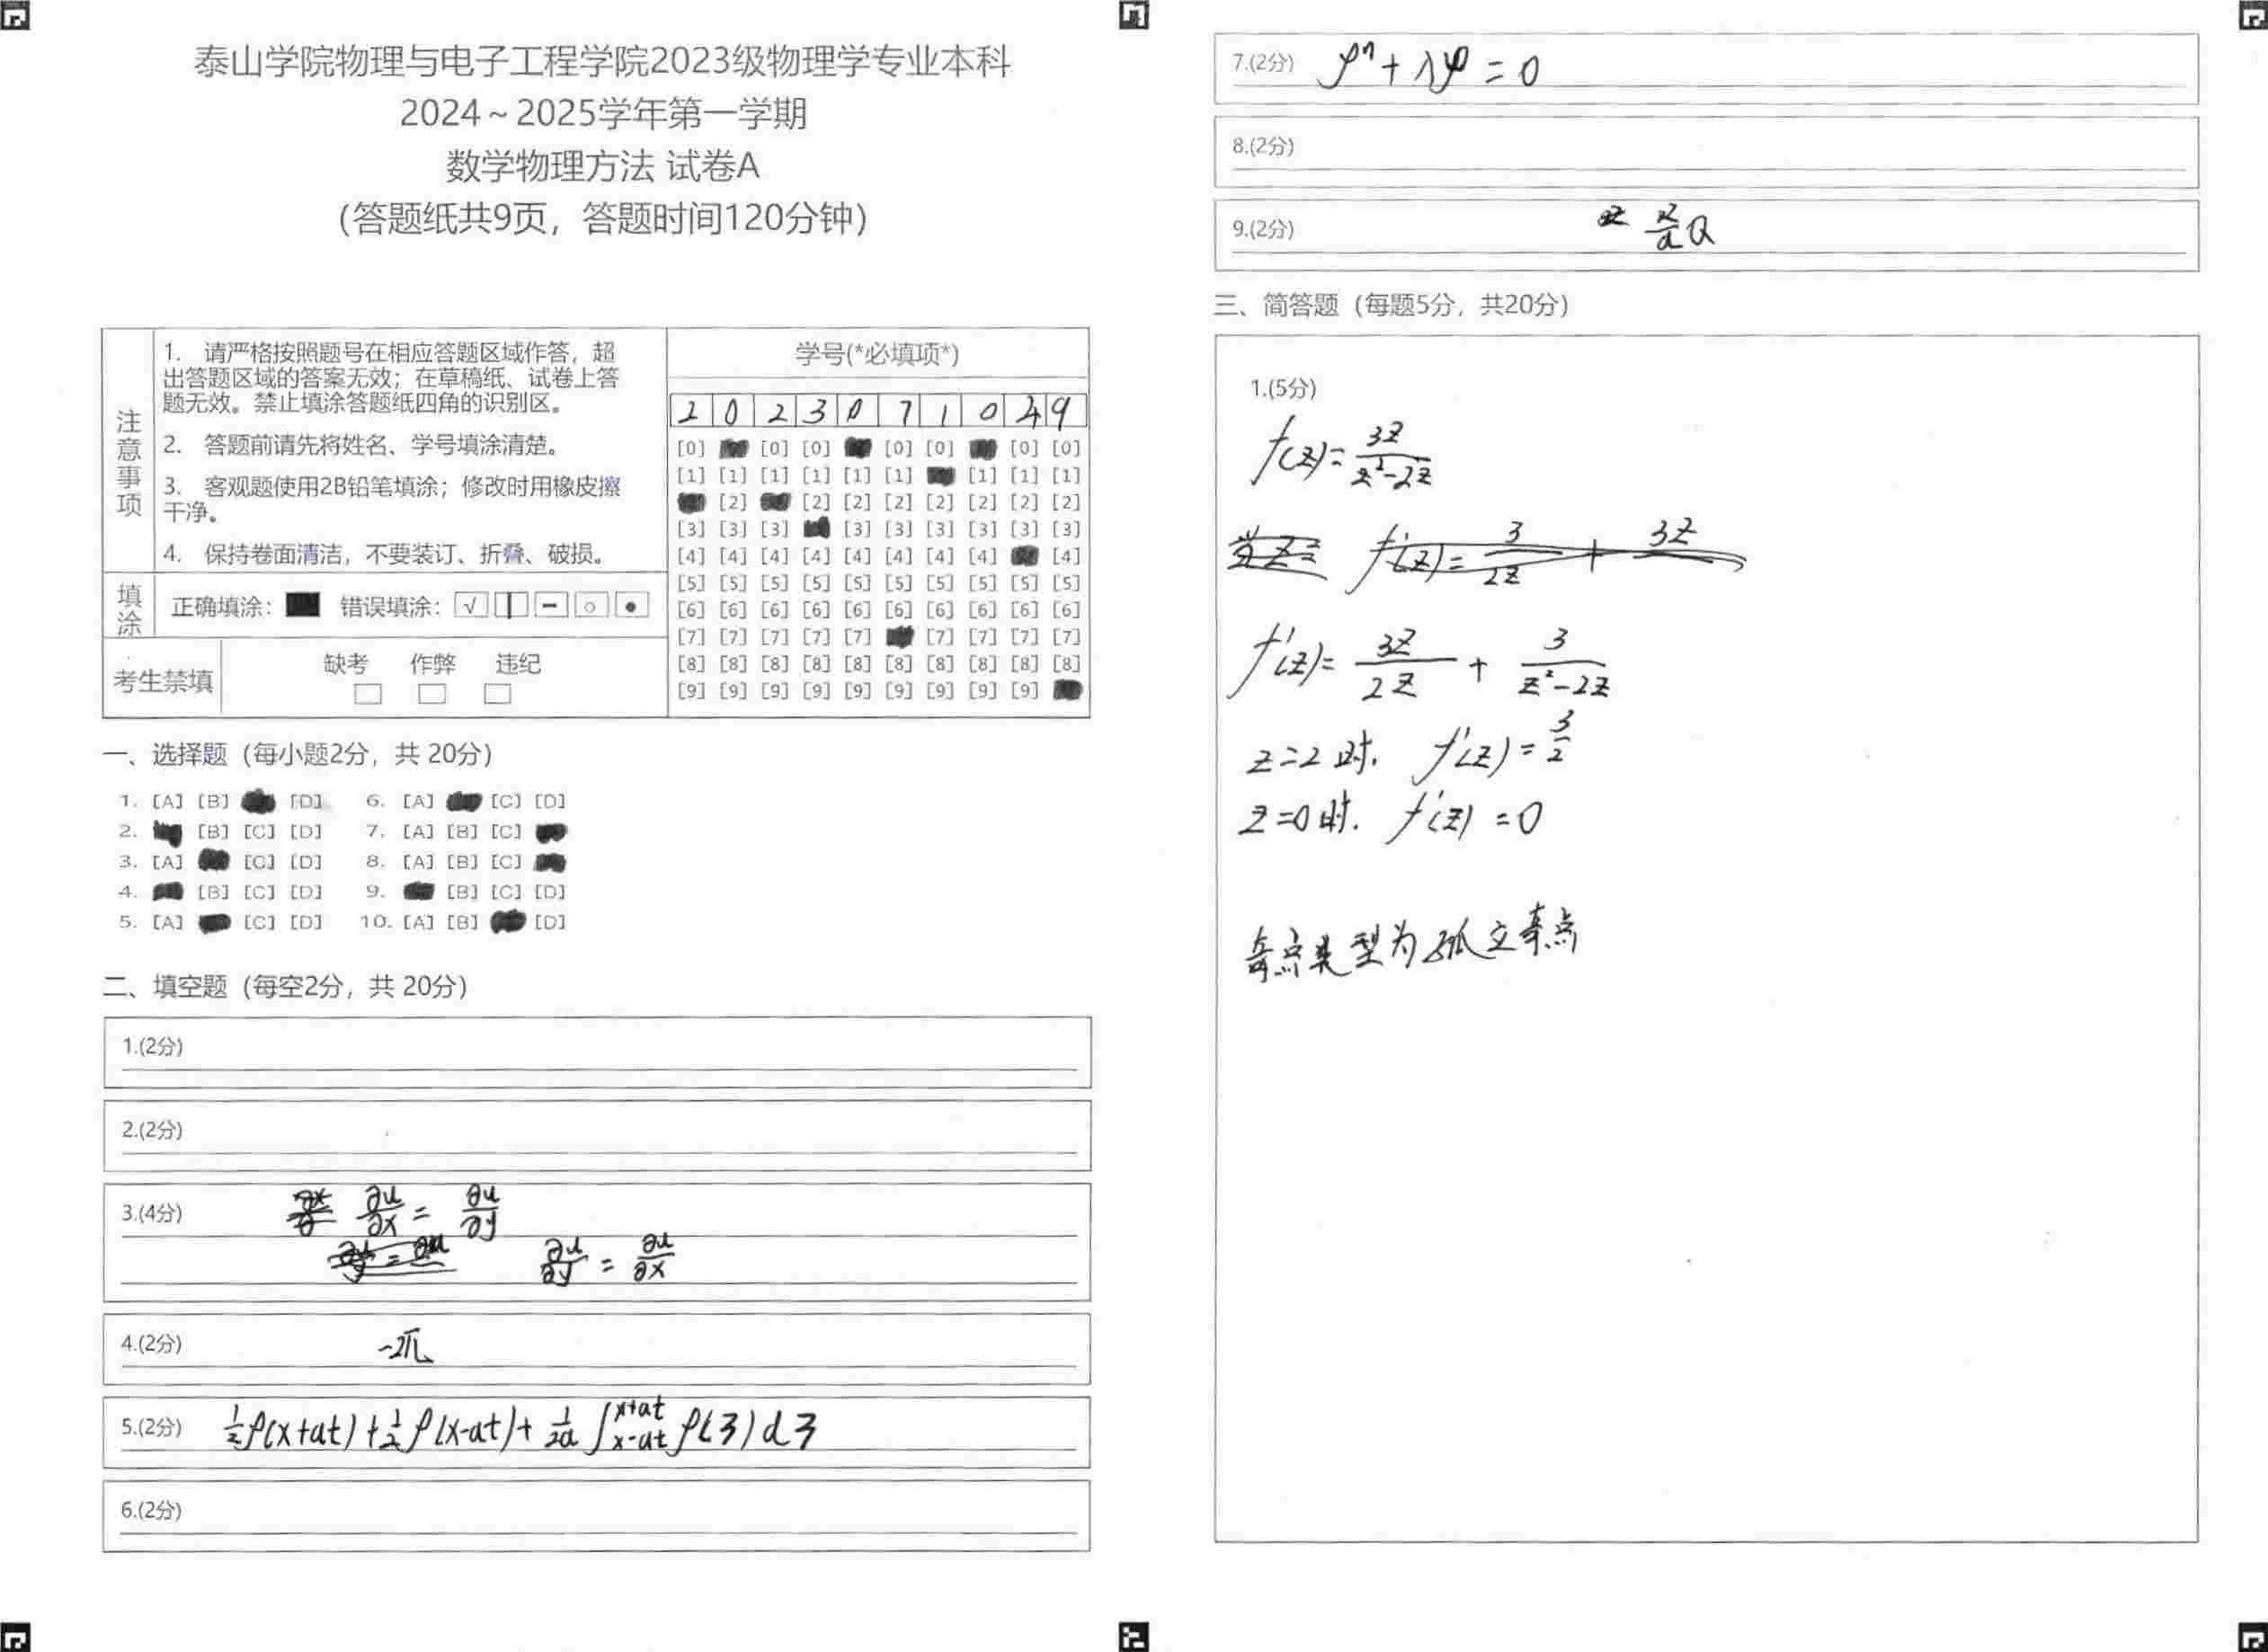 泰山学院物理与电子工程学院2023级物理学专业本科
2024～2025学年第一学期
数学物理方法 试卷A
（答题纸共9页，答题时间120分钟）
注意事项
1. 请严格按照题号在相应答题区域作答，超
出答题区域的答案无效；在草稿纸、试卷上答
题无效。禁止填涂答题纸四角的识别区。
2. 答题前请先将姓名、学号填涂清楚。
3. 客观题使用2B铅笔填涂；修改时用橡皮擦
干净。
4. 保持卷面清洁，不要装订、折叠、破损。
填涂
正确填涂： 错误填涂：
考生禁填
缺考 作弊 违纪
学号(*必填项*)
2 0 2 3 0 7 1 0 4 9
[0] [0] [0] [0] [0] [0] [0]
[1] [1] [1] [1] [1] [1] [1] [1] [1]
[2] [2] [2] [2] [2] [2] [2] [2]
[3] [3] [3] [3] [3] [3] [3] [3] [3]
[4] [4] [4] [4] [4] [4] [4] [4] [4]
[5] [5] [5] [5] [5] [5] [5] [5] [5] [5]
[6] [6] [6] [6] [6] [6] [6] [6] [6] [6]
[7] [7] [7] [7] [7] [7] [7] [7] [7]
[8] [8] [8] [8] [8] [8] [8] [8] [8] [8]
[9] [9] [9] [9] [9] [9] [9] [9] [9]
一、选择题（每小题2分，共 20分）
1. [A] [B] [D] 6. [A] [C] [D]
2. [B] [C] [D] 7. [A] [B] [C]
3. [A] [C] [D] 8. [A] [B] [C]
4. [B] [C] [D] 9. [B] [C] [D]
5. [A] [C] [D] 10. [A] [B] [D]
二、填空题（每空2分，共 20分）
1.(2分)
2.(2分)
3.(4分) ∂u/∂x = ∂u/∂y
∂u/∂y = ∂u/∂x
4.(2分) -2π
5.(2分) 1/2 φ(x+at) + 1/2 φ(x-at) + 1/2a ∫_{x-at}^{x+at} φ(ξ)dξ
6.(2分)
7.(2分) φ'' + λφ = 0
8.(2分)
9.(2分)
三、简答题（每题5分，共20分）
1.(5分)
f(z) = 3z/(z²-2z)
f'(z) = 3z/2z + 3/(z²-2z)
z=2时. f'(z) = 3/2
z=0时. f'(z) = 0
奇点类型为孤立奇点